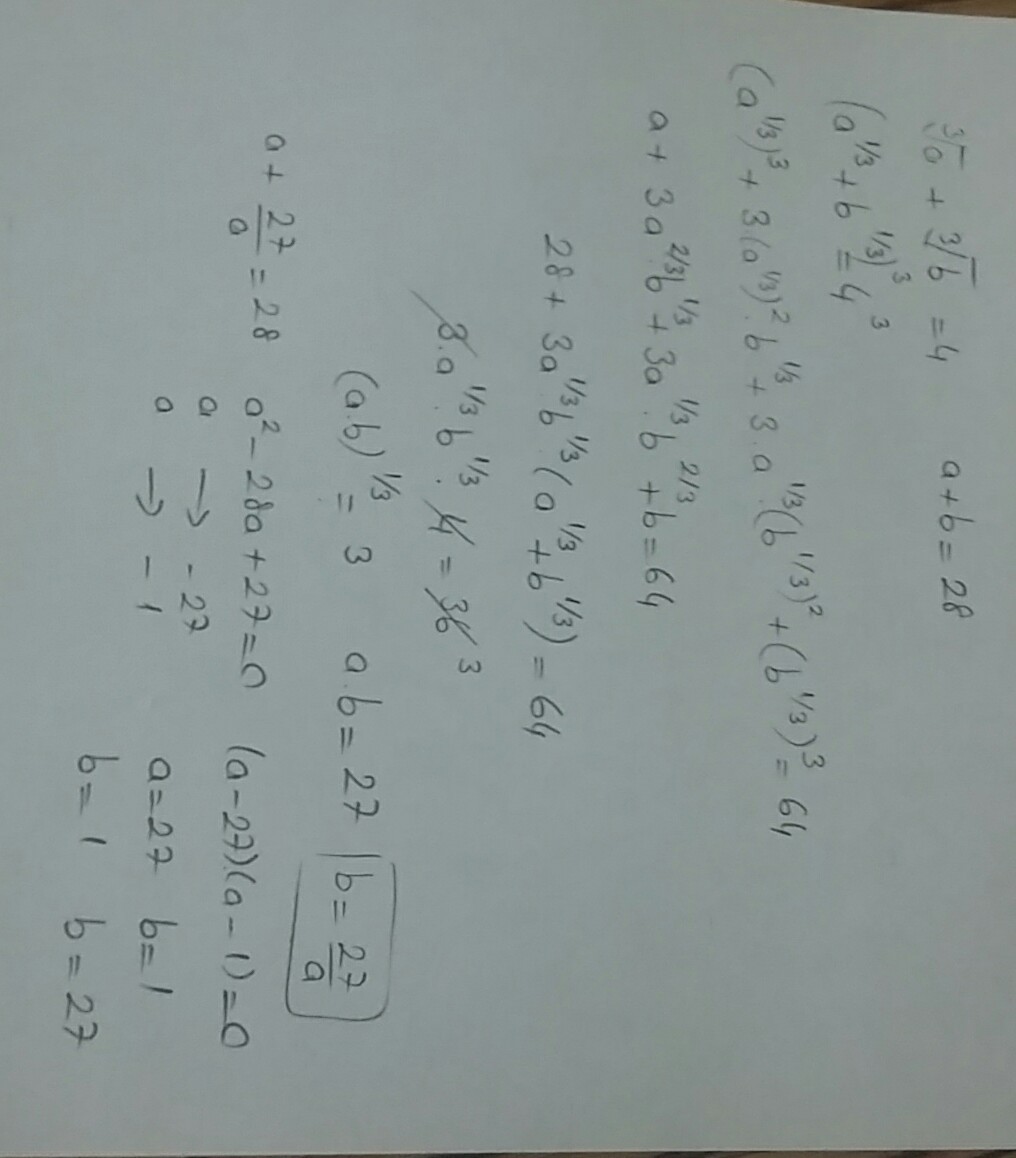 ∛a + ∛b = 4   a+b = 28
(a^1/3 + b^1/3)^3 = 4^3
(a^1/3)^3 + 3.(a^1/3)^2.b^1/3 + 3.a^1/3.(b^1/3)^2 + (b^1/3)^3 = 64
a + 3a^2/3.b^1/3 + 3a^1/3.b^2/3 + b = 64
28 + 3a^1/3.b^1/3(a^1/3 + b^1/3) = 64
3.a^1/3.b^1/3.4 = 36 3
(a.b)^1/3 = 3   a.b = 27   b = 27/a
a + 27/a = 28   a^2 - 28a + 27 = 0   (a-27).(a-1) = 0
a → -27   a = 27   b = 1
a → -1   b = 1   b = 27